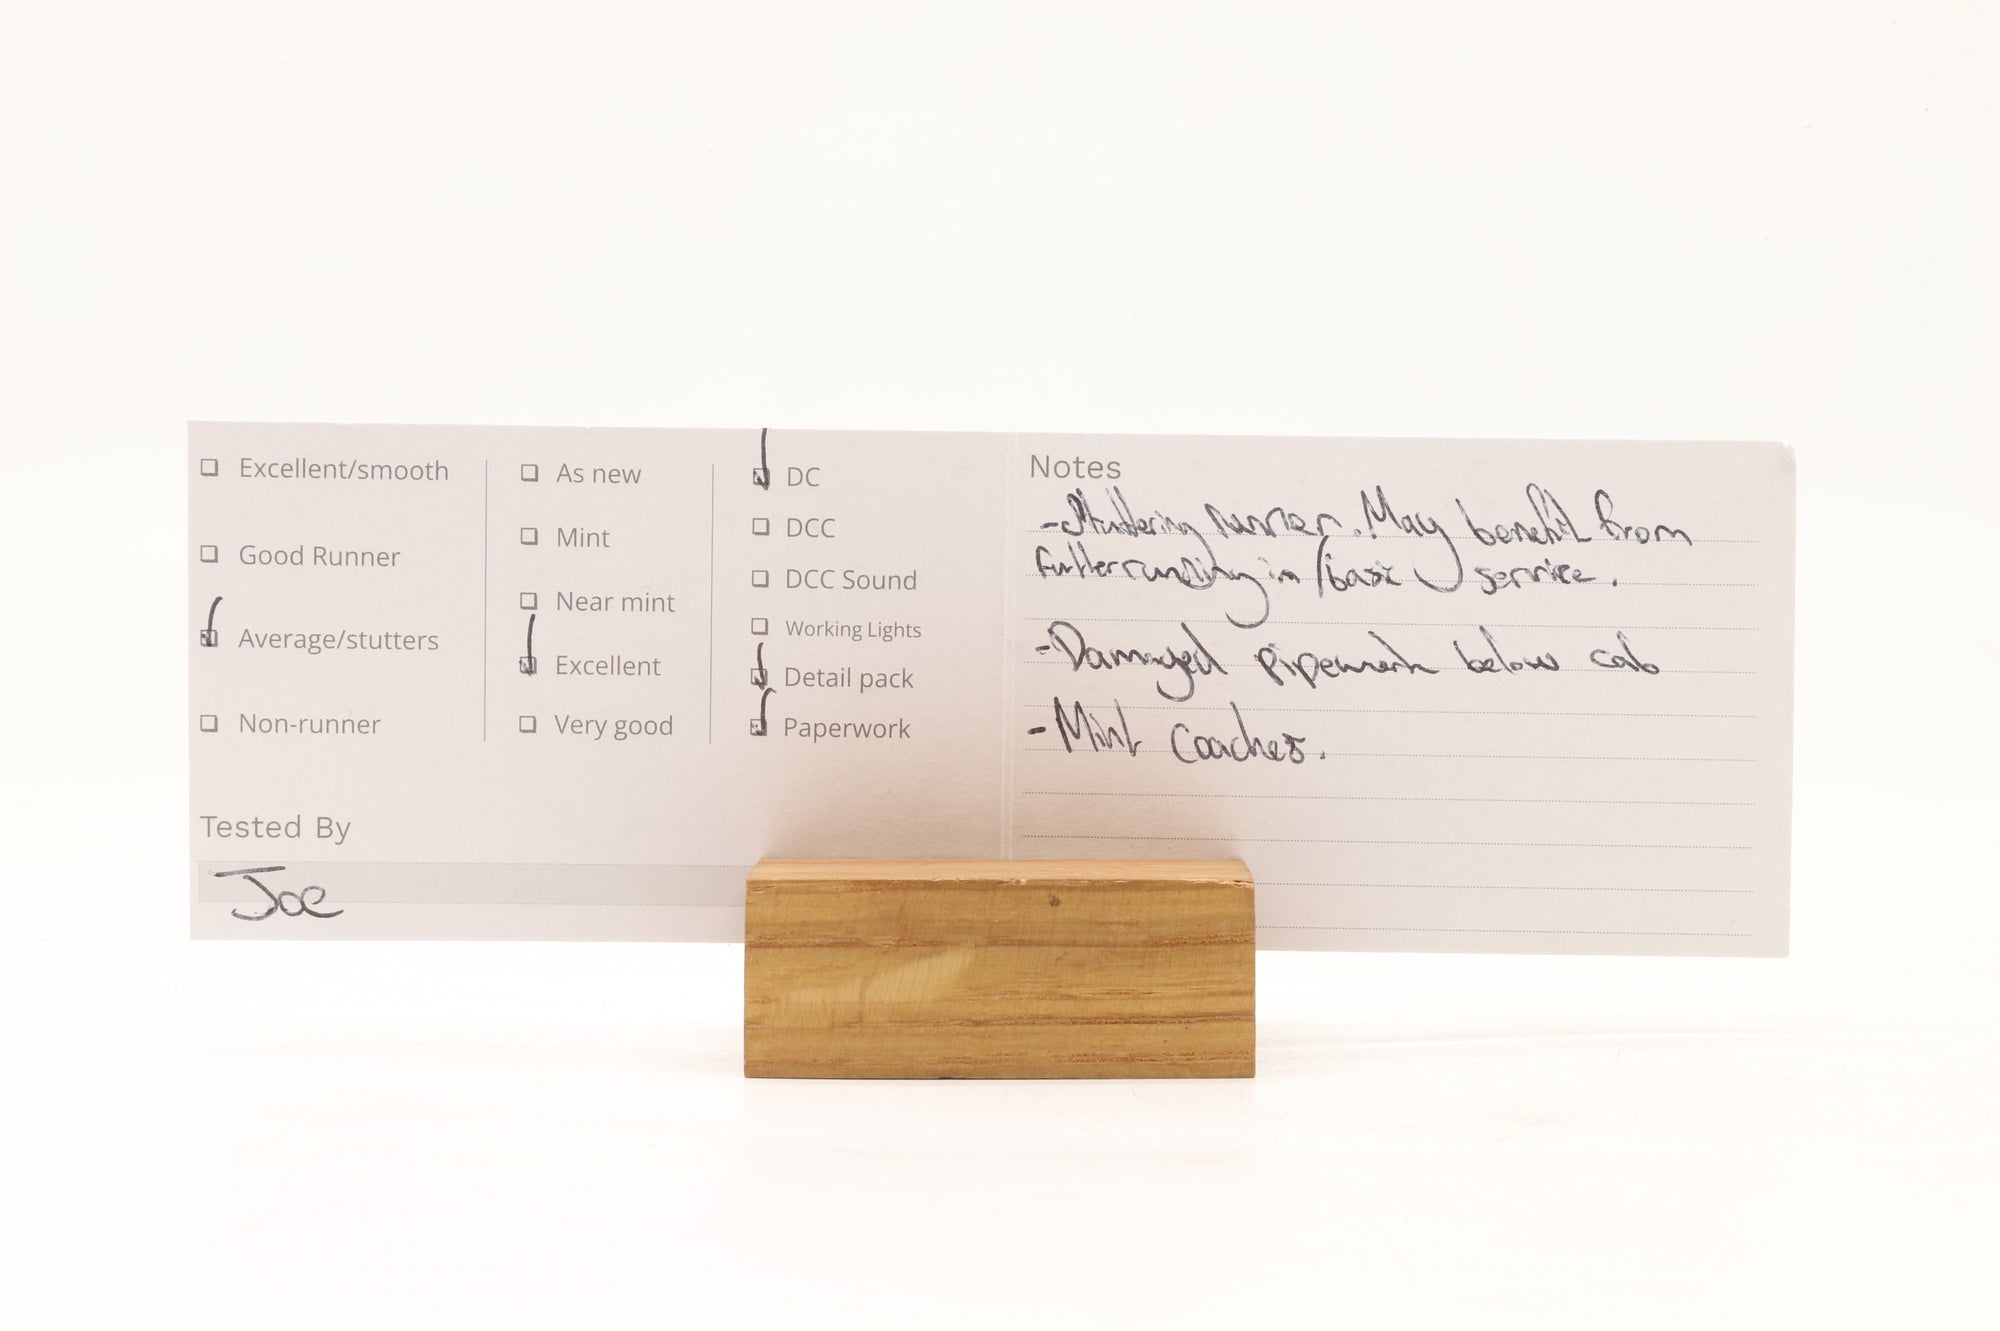 Excellent/smooth
Good Runner
Average/stutters
Non-runner
As new
Mint
Near mint
Excellent
Very good
DC
DCC
DCC Sound
Working Lights
Detail pack
Paperwork
Tested By
Joe
Notes
- Stuttering runner. May benefit from
further running in / basic service.
- Damaged pipework below cab
- Mint Coaches.